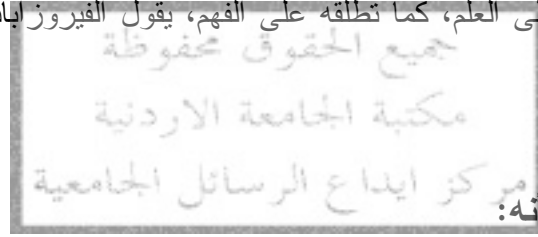 ى العلم، كما تطلقه على الفهم، يقول الفيروزاباد
جميع الحقوق محفوظة
مكتبة الجامعة الاردنية
مركز ايداع الرسائل الجامعية
نه: